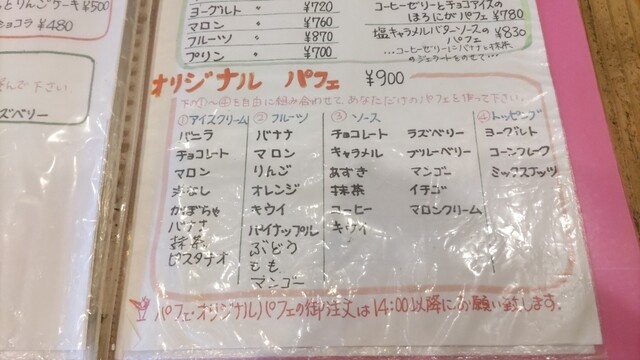 りんごケーキ ¥500
ショコラ ¥480
ズベリー
ヨーグルト 〃 ¥720
マロン 〃 ¥760
フルーツ 〃 ¥870
プリン 〃 ¥700
コーヒーゼリーとチョコアイスの
ほろにがパフェ ¥780
塩キャラメルバターソースの
パフェ ¥830
オリジナル パフェ ¥900
下の①〜④を自由に組み合わせて、あなただけのパフェを作って下さい。
①アイスクリーム
バニラ
チョコレート
マロン
かぼちゃ
バナナ
抹茶
ピスタチオ
②フルーツ
バナナ
マロン
りんご
オレンジ
キウイ
パイナップル
ぶどう
もも
マンゴー
③ソース
チョコレート
キャラメル
あずき
抹茶
コーヒー
キウイ
ラズベリー
ブルーベリー
マンゴー
イチゴ
マロンクリーム
④トッピング
ヨーグルト
コーンフレーク
ミックスナッツ
パフェ・オリジナルパフェの御注文は14:00以降にお願い致します。